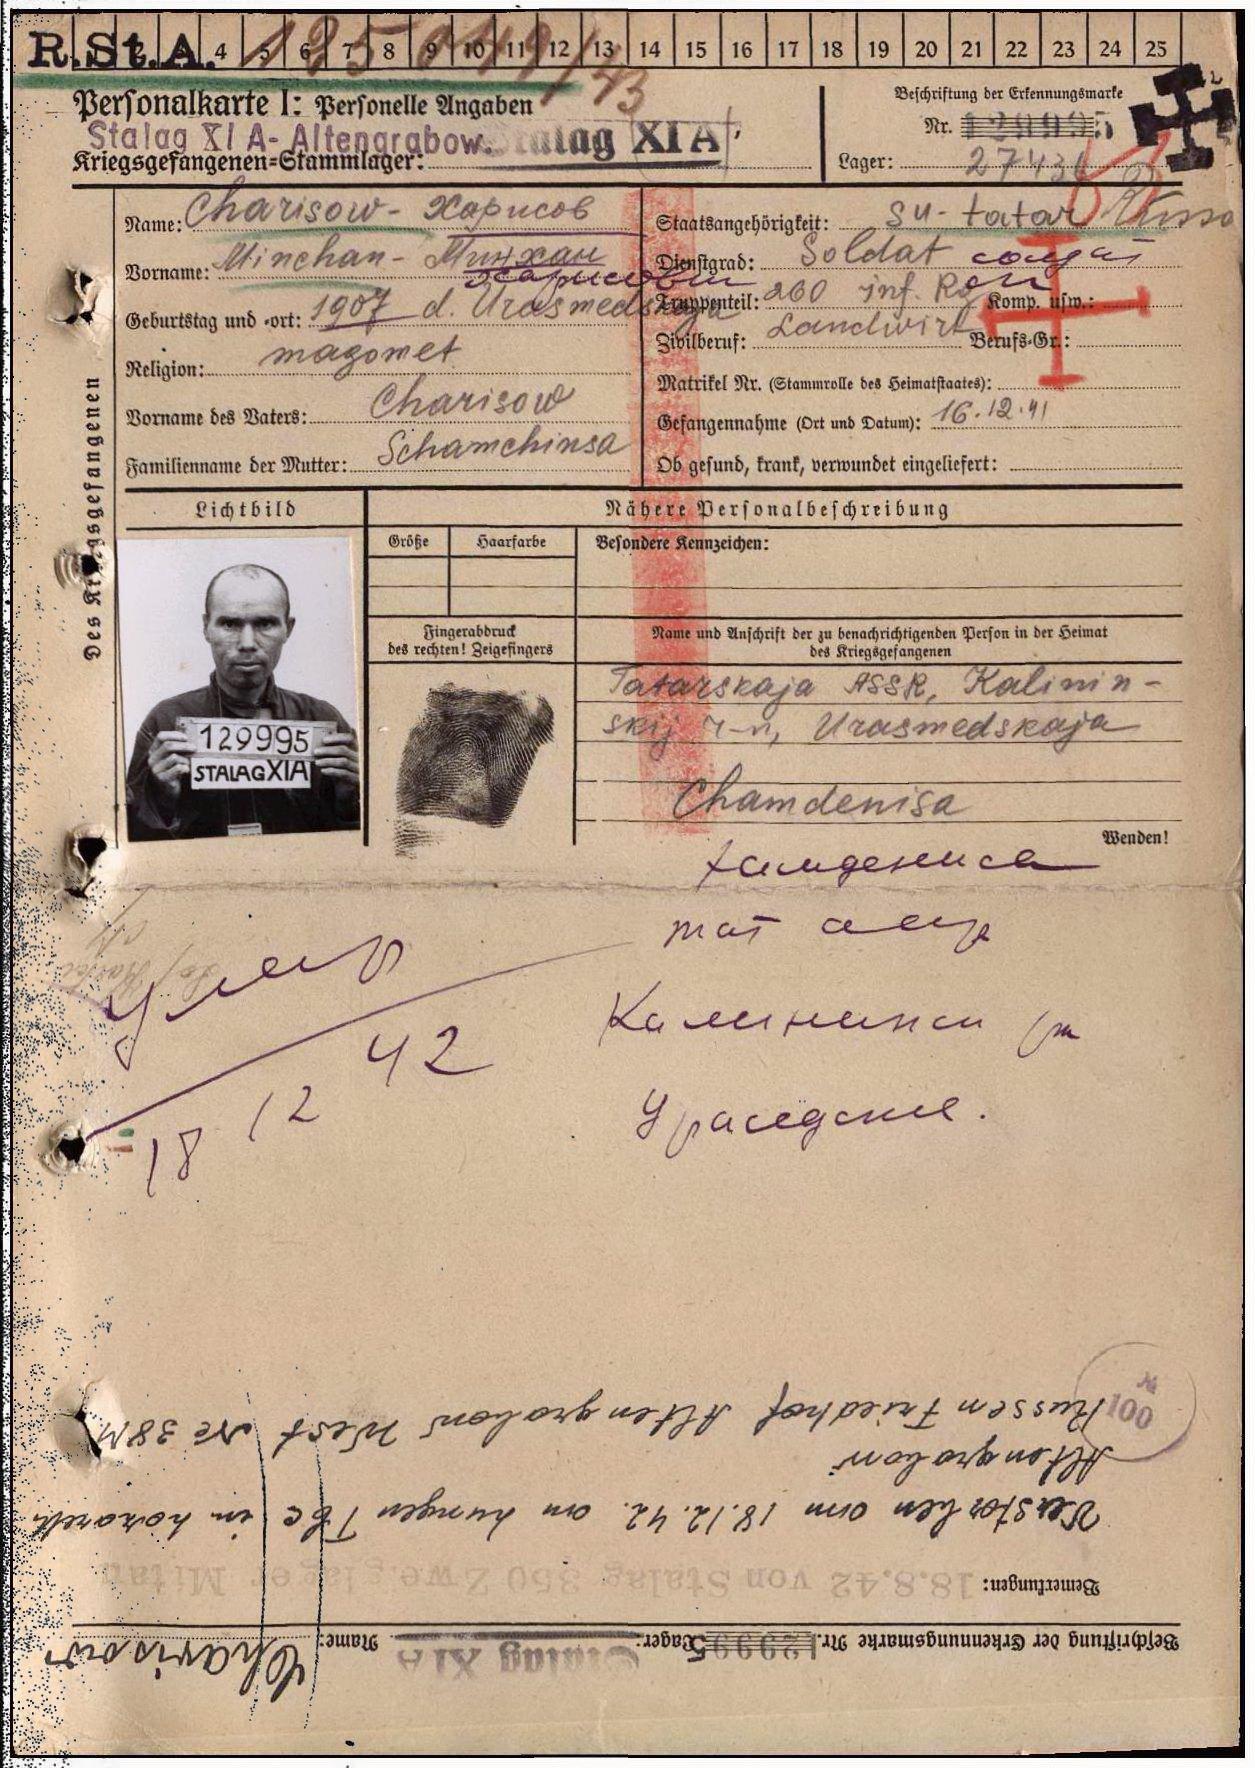 R.St.A.
4 5 6 7 8 9 10 11 12 13 14 15 16 17 18 19 20 21 22 23 24 25
Personalkarte I: Personelle Angaben
Stalag XI A- Altengrabow. Stalag XI A
Kriegsgefangenen=Stammlager:
Beschriftung der Erkennungsmarke
Nr. 129995
Lager:
Des Kriegsgefangenen
Name: Charisow - Харисов
Vorname: Minchan - Минхан
Харисович
Geburtstag und =ort: 1907 d. Urasmedskaja
Religion: magomet
Vorname des Vaters: Charisow
Familienname der Mutter: Schamchinsa
Staatsangehörigkeit: SU- tatar Russe
Dienstgrad: Soldat солдат
Truppenteil: 260 inf. Rg Komp. usw.:
Zivilberuf: Landwirt Berufs=Gr.:
Matrikel Nr. (Stammrolle des Heimatstaates):
Gefangennahme (Ort und Datum): 16.12.41
Ob gesund, krank, verwundet eingeliefert:
Lichtbild
Nähere Personalbeschreibung
Größe
Haarfarbe
Besondere Kennzeichen:
Fingerabdruck
des rechten! Zeigefingers
Name und Anschrift der zu benachrichtigenden Person in der Heimat
des Kriegsgefangenen
129995
STALAG XIA
Tatarskaja ASSR, Kalinin-
skij r-n, Urasmedskaja
Chamdenisa
Wenden!
Хамдениса
тат
Умер
18 12 42
Beschriftung der Erkennungsmarke Nr. 129995 Lager: Stalag XI A Name: Charisow
Bemerkungen: 18.8.42 von Stalag 350 Zweiglager Mitau
Verstorben am 18.12.42. an Lungen Tbc in
Altengrabow
Russen Friedhof Altengrabow West Nr 38
100